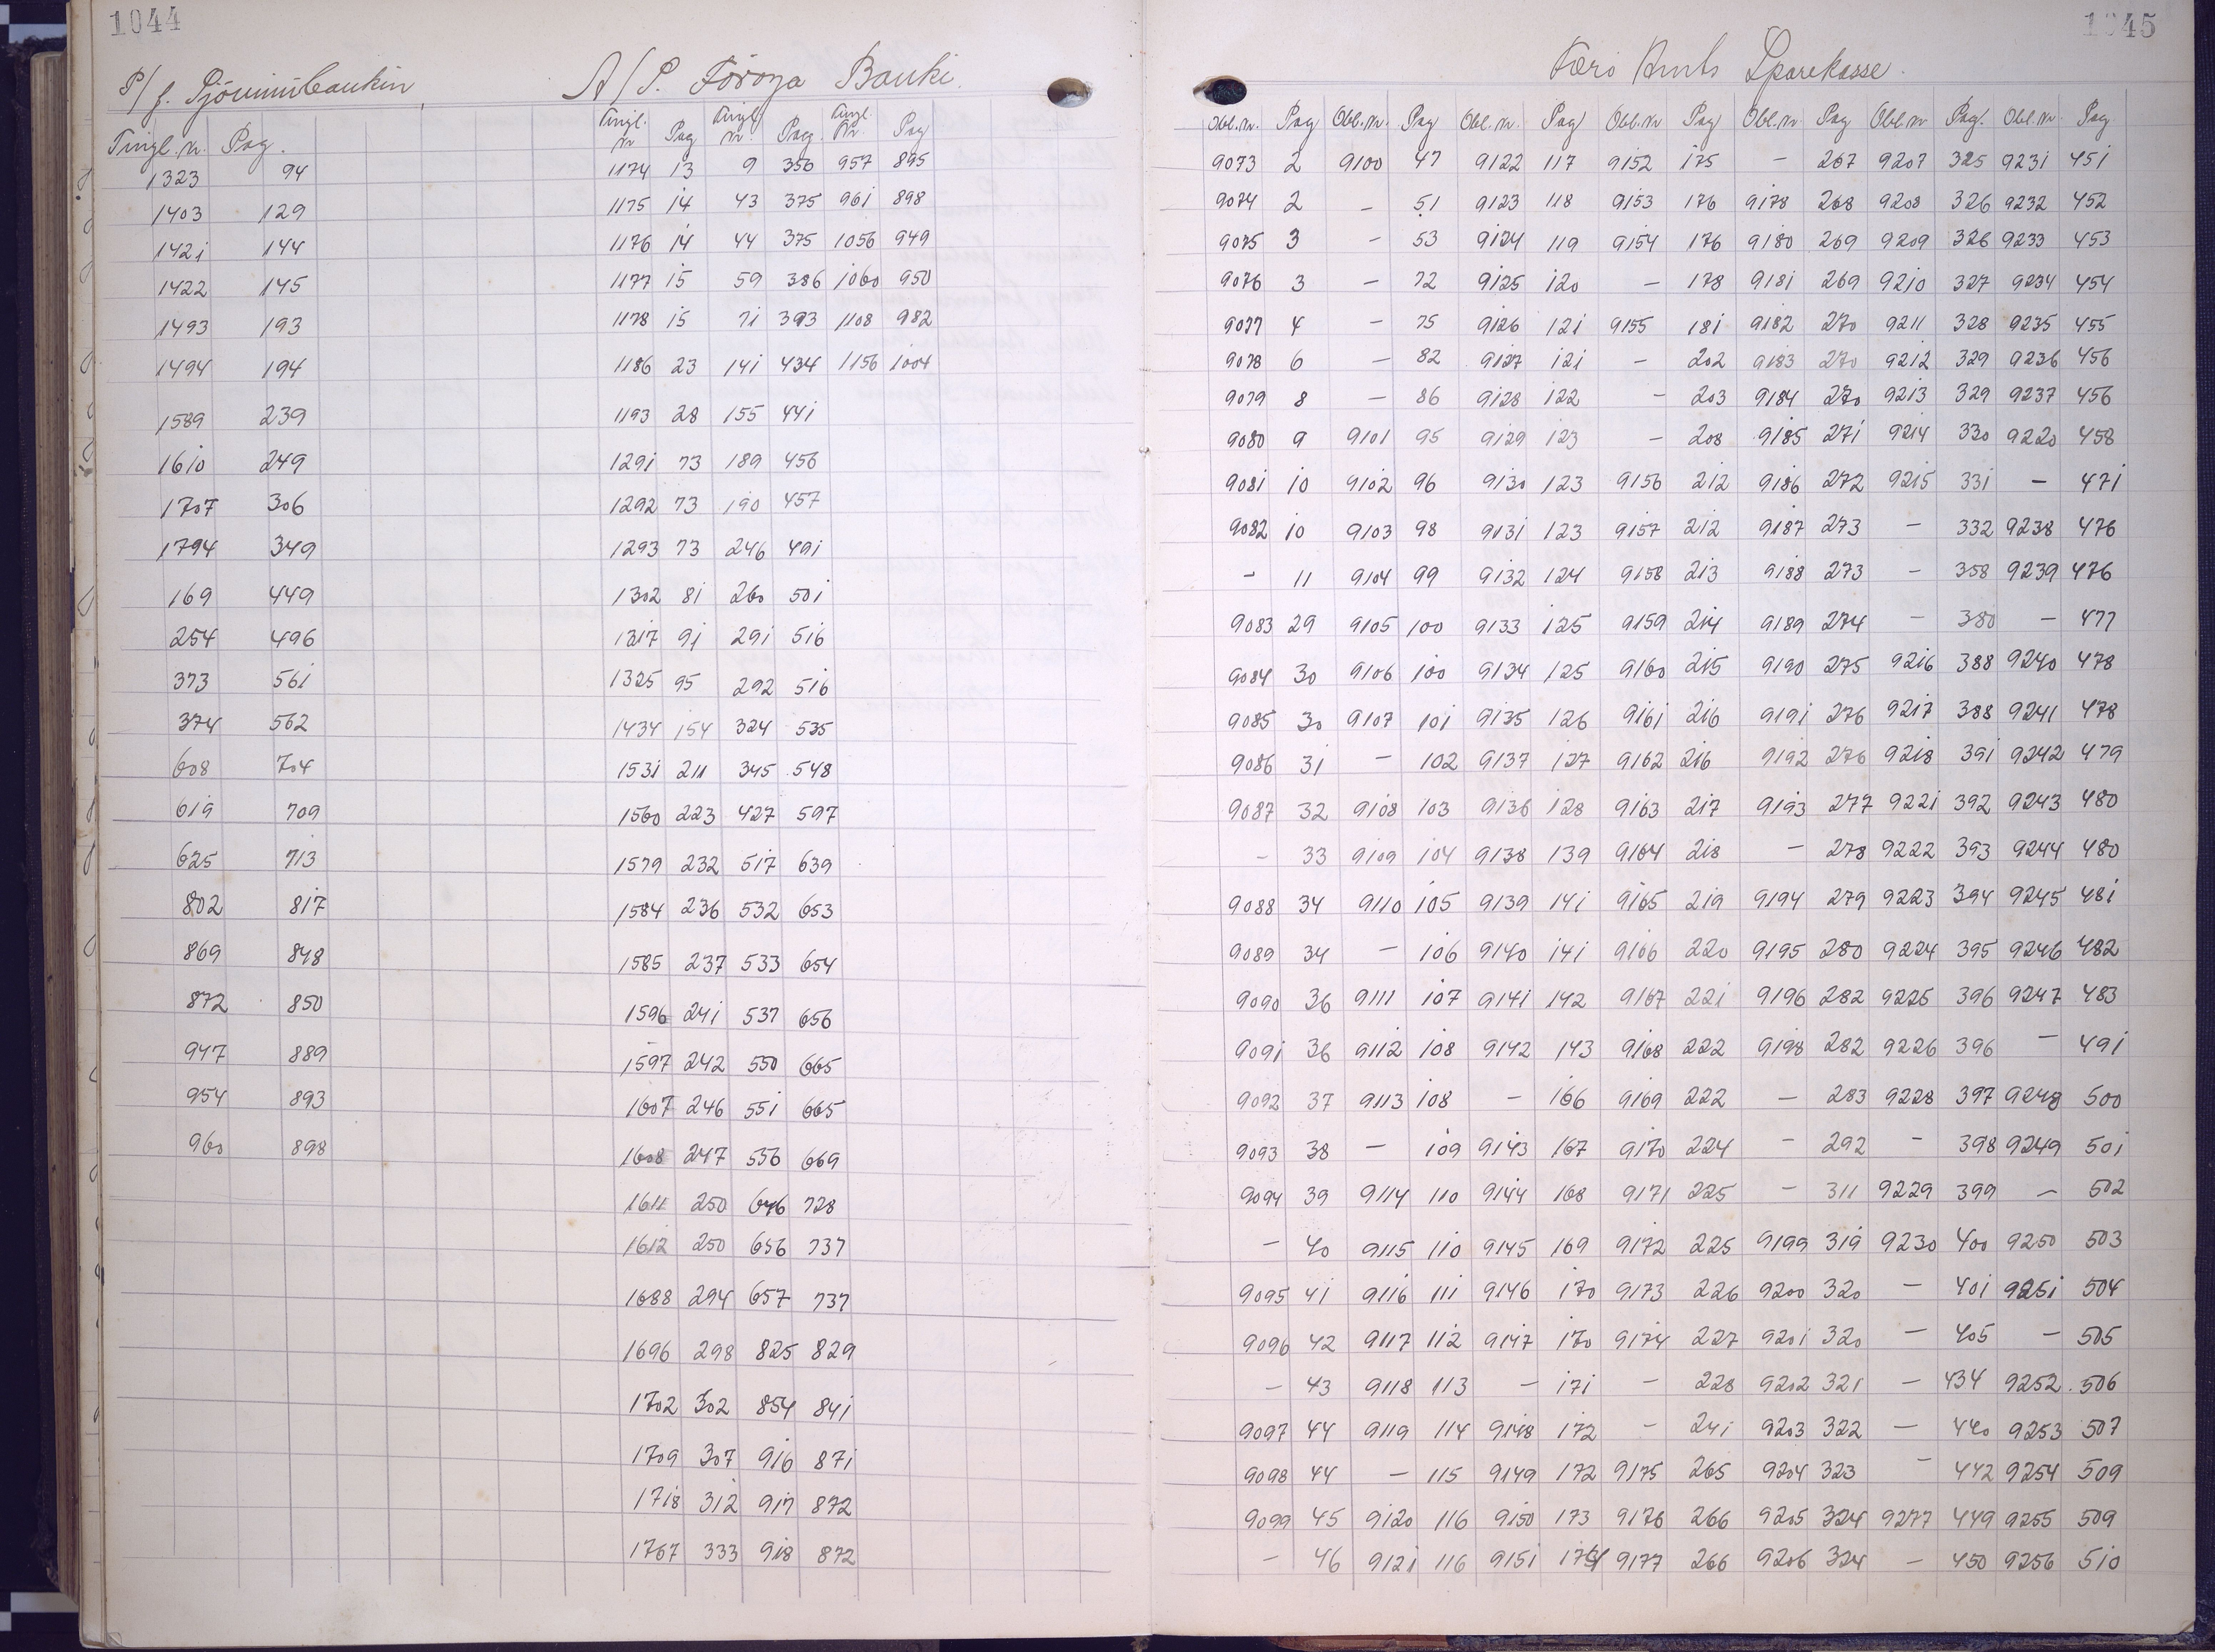 1044
P/f. Sjóvinnúbankin,
Tingl. n. Pag.
1323 94
1403 129
1421 144
1422 145
1493 193
1494 194
1589 239
1610 249
1707 306
1794 349
169 449
254 496
373 561
374 562
608 704
619 709
625 713
802 817
869 848
872 850
947 889
954 893
960 898
A/S. Föroya Banki.
Tingl. n Pag Tingl. n. Pag. Tingl. Nr. Pag
1174 13 9 350 957 895
1175 14 43 375 961 898
1176 14 44 375 1056 949
1177 15 59 386 1060 950
1178 15 71 393 1108 982
1186 23 141 434 1156 1004
1193 28 155 441
1291 73 189 456
1292 73 190 457
1293 73 246 491
1302 81 260 501
1317 91 291 516
1325 95 292 516
1434 154 324 535
1531 211 345 548
1560 223 427 597
1579 232 517 639
1584 236 532 653
1585 237 533 654
1596 241 537 656
1597 242 550 665
1607 246 551 665
1608 247 556 669
1611 250 646 728
1612 250 656 737
1688 294 657 737
1696 298 825 829
1702 302 854 841
1709 307 916 871
1718 312 917 872
1767 333 918 872
1045
Færö Amts Sparekasse.
Obl.n. Pag Obl.n. Pag Obl.n. Pag Obl.n Pag Obl.n Pag Obl.n Pag. Obl.n. Pag
9073 2 9100 47 9122 117 9152 175 – 267 9207 325 9231 451
9074 2 – 51 9123 118 9153 176 9178 268 9208 326 9232 452
9075 3 – 53 9124 119 9154 176 9180 269 9209 326 9233 453
9076 3 – 72 9125 120 – 178 9181 269 9210 327 9234 454
9077 4 – 75 9126 121 9155 181 9182 270 9211 328 9235 455
9078 6 – 82 9127 121 – 202 9183 270 9212 329 9236 456
9079 8 – 86 9128 122 – 203 9184 270 9213 329 9237 456
9080 9 9101 95 9129 123 – 208 9185 271 9214 330 9220 458
9081 10 9102 96 9130 123 9156 212 9186 272 9215 331 – 471
9082 10 9103 98 9131 123 9157 212 9187 273 – 332 9238 476
– 11 9104 99 9132 124 9158 213 9188 273 – 358 9239 476
9083 29 9105 100 9133 125 9159 214 9189 274 – 380 – 477
9084 30 9106 100 9134 125 9160 215 9190 275 9216 388 9240 478
9085 30 9107 101 9135 126 9161 216 9191 276 9217 388 9241 478
9086 31 – 102 9137 127 9162 216 9192 276 9218 391 9242 479
9087 32 9108 103 9136 128 9163 217 9193 277 9221 392 9243 480
– 33 9109 104 9138 139 9164 218 – 278 9222 393 9244 480
9088 34 9110 105 9139 141 9165 219 9194 279 9223 394 9245 481
9089 34 – 106 9140 141 9166 220 9195 280 9224 395 9246 482
9090 36 9111 107 9141 142 9167 221 9196 282 9225 396 9247 483
9091 36 9112 108 9142 143 9168 222 9198 282 9226 396 – 491
9092 37 9113 108 – 166 9169 222 – 283 9228 397 9248 500
9093 38 – 109 9143 167 9170 224 – 292 – 398 9249 501
9094 39 9114 110 9144 168 9171 225 – 311 9229 399 – 502
– 40 9115 110 9145 169 9172 225 9199 319 9230 400 9250 503
9095 41 9116 111 9146 170 9173 226 9200 320 – 401 9251 504
9096 42 9117 112 9147 170 9174 227 9201 320 – 405 – 505
– 43 9118 113 – 171 – 228 9202 321 – 434 9252 506
9097 44 9119 114 9148 172 – 241 9203 322 – 440 9253 507
9098 44 – 115 9149 172 9175 265 9204 323 – 442 9254 509
9099 45 9120 116 9150 173 9176 266 9205 324 9277 449 9255 509
– 46 9121 116 9151 174 9177 266 9206 324 – 450 9256 510